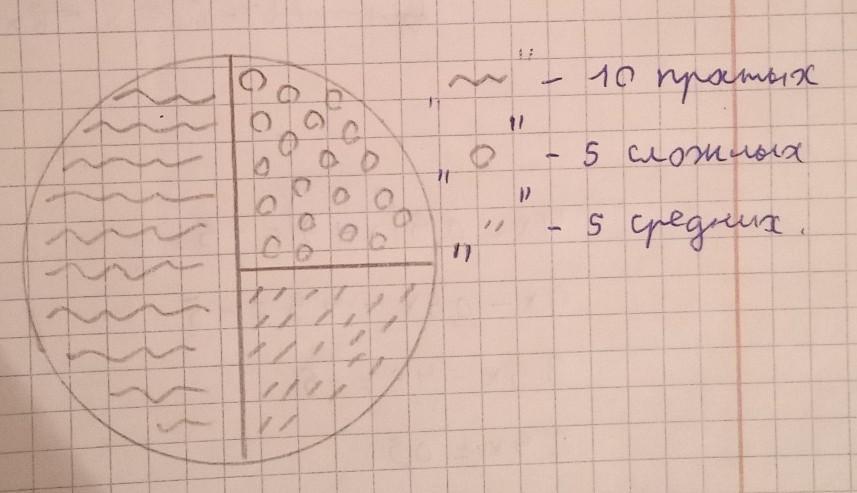 „~" - 10 простых
„О" - 5 сложных
„〃" - 5 средних.